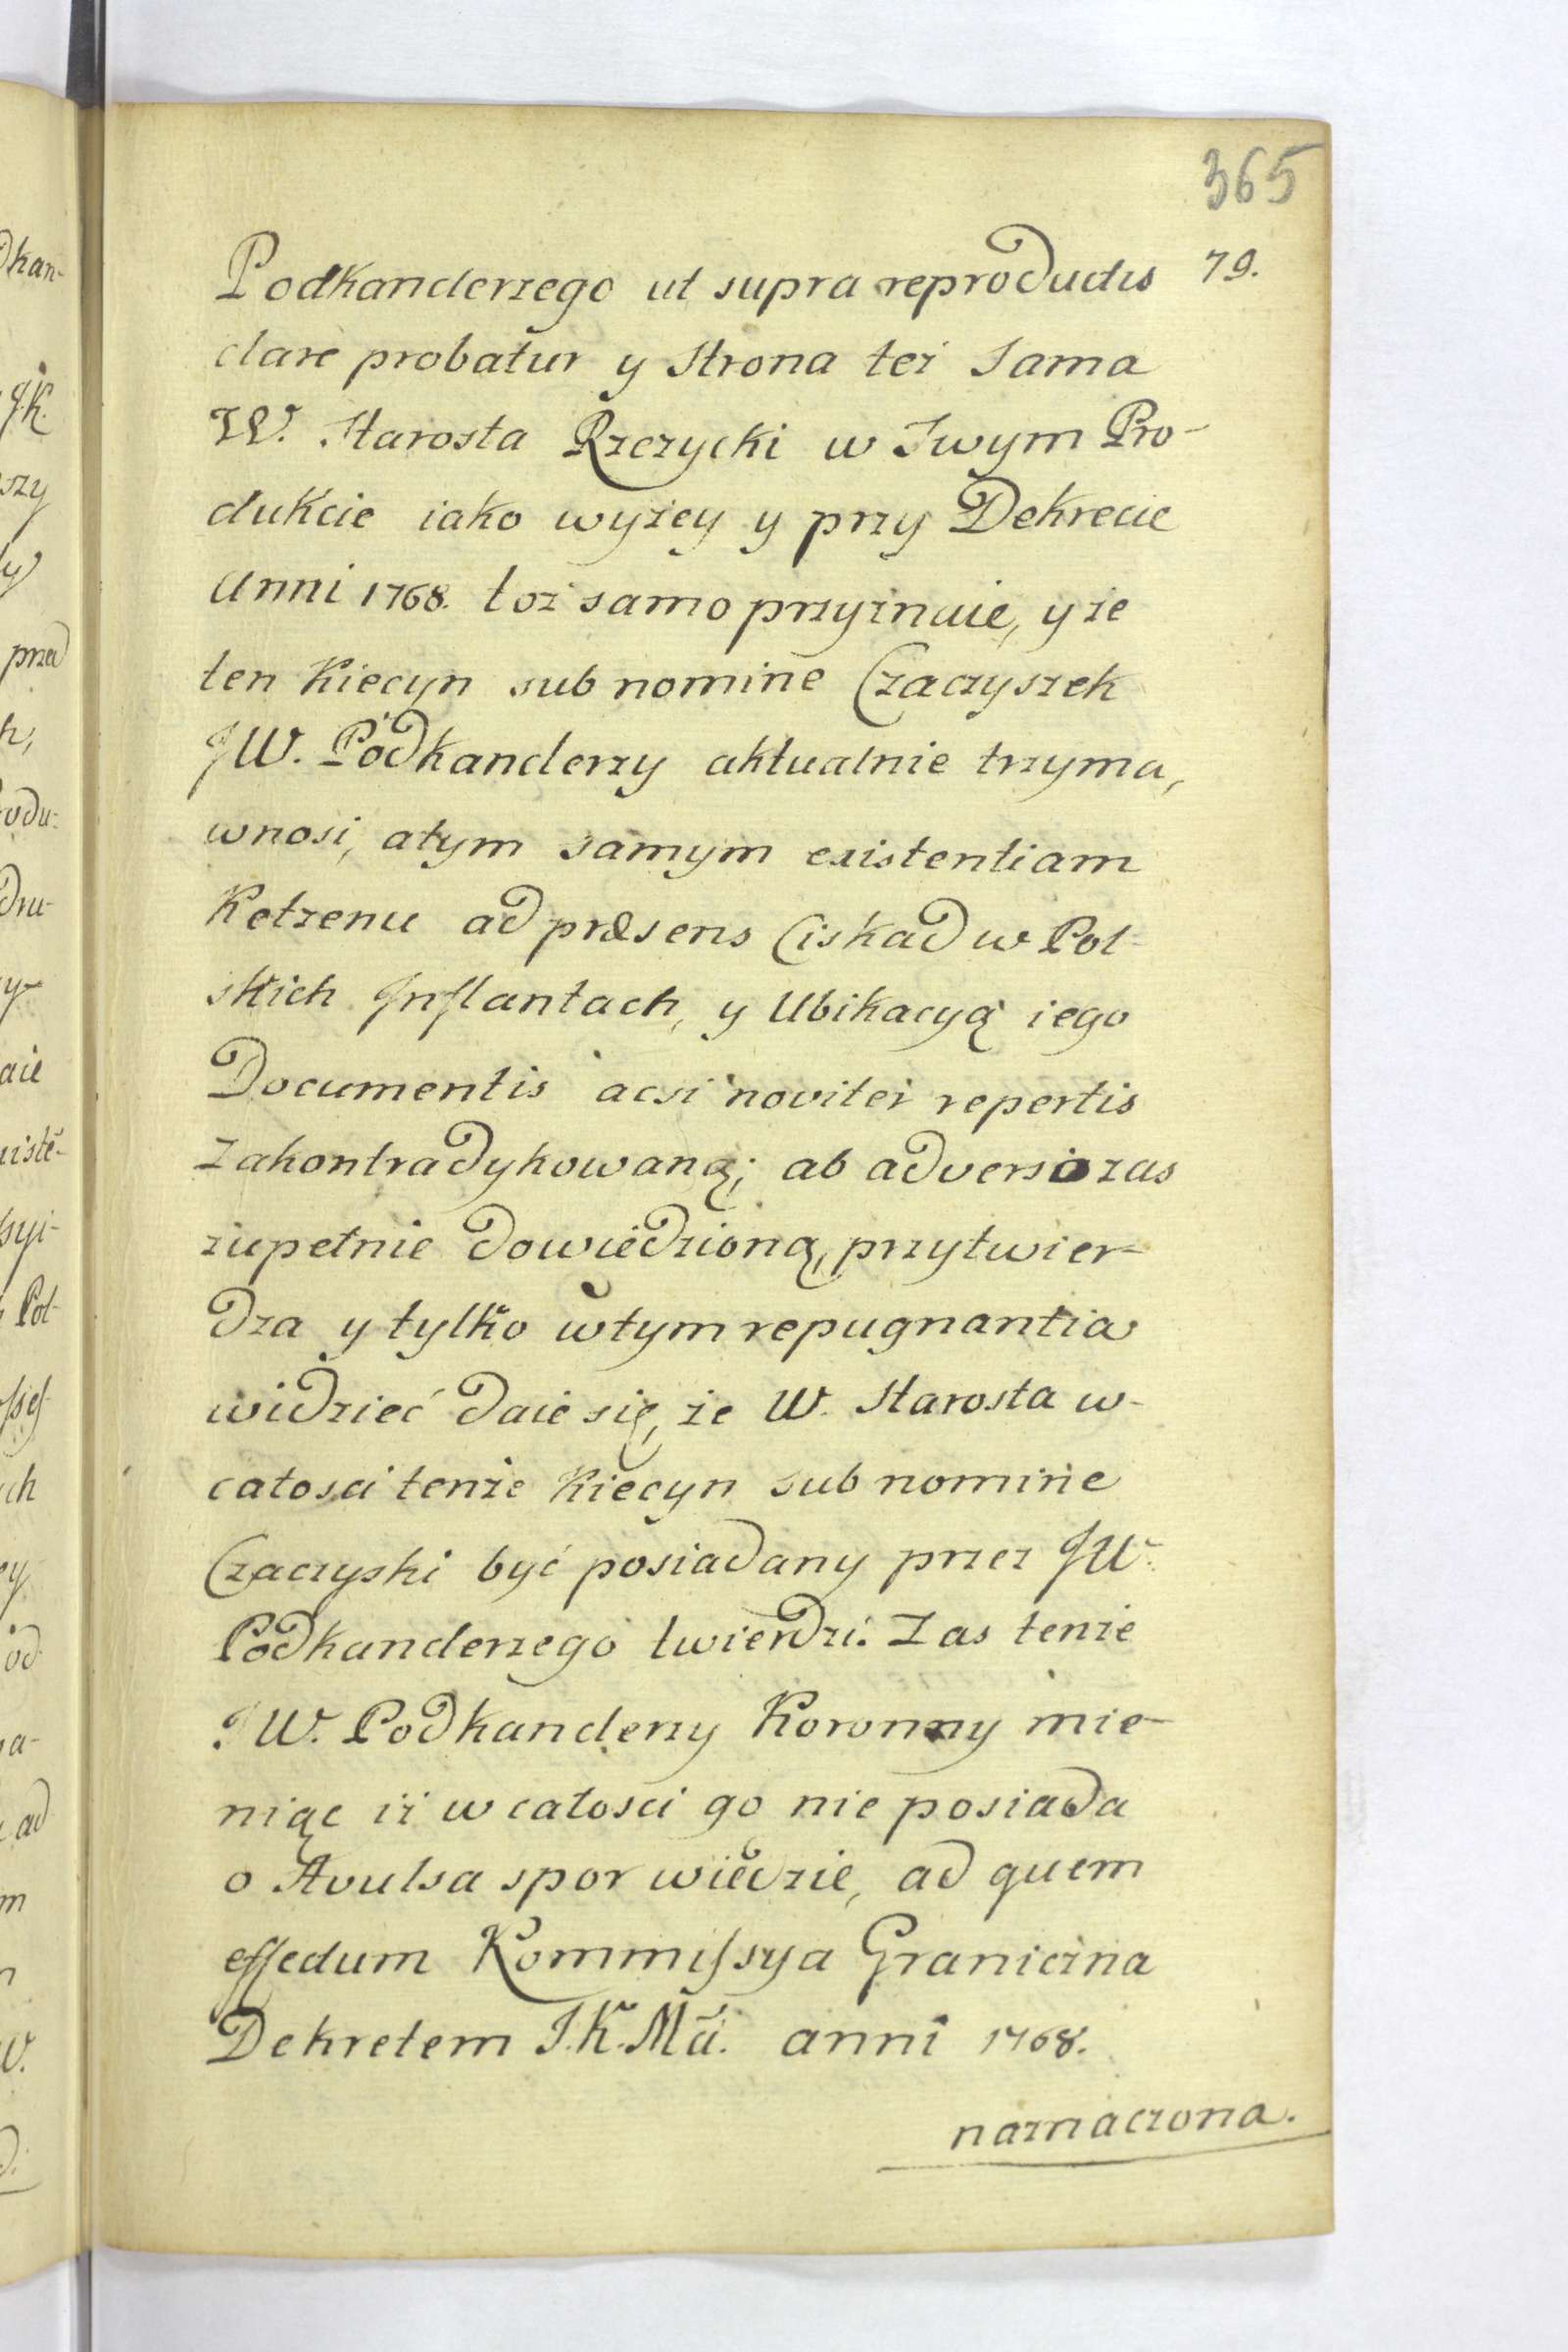 365
Podkanclerzego ut supra reproductis 79.
clare probatur y Strona też Sama
W. Starosta Rzczycki w Swym Pro-
dukcie iako wyżey y przy Dekrecie
Anni 1768. toż samo przyznaie, y że
ten Kiecyn sub nomine Czaczyszek
JW. Podkanclerzy aktualnie trzyma,
wnosi, atym samym existentiam
Ketzenu ad præsens Ciskad w Pol-
skich Inflantach, y Ubikacyą iego
Documentis acsi noviter repertis
zakontradykowaną; ab adverso zas
zupełnie dowiedzioną, przytwier-
dza y tylko wtym repugnantia
widzieć daie się, że W. Starosta w-
całosci tenże Kiecyn sub nomine
Czaczyski być posiadany przez JW.
Podkanclerzego twierdzi. Zas tenże
JW. Podkanclerzy Koronny mie-
niąc iż w całosci go nie posiada
o Avulsa spor wiedzie, ad quem
effectum Kommissya Graniczna
Dekretem J.K.Mci. anni 1768.
naznaczona.